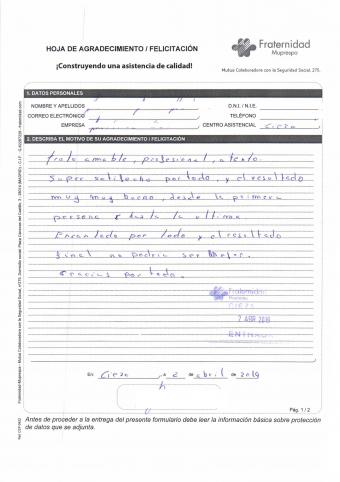 HOJA DE AGRADECIMIENTO / FELICITACIÓN
Fraternidad
Muprespa
¡Construyendo una asistencia de calidad!
Mutua Colaboradora con la Seguridad Social, 275.
1. DATOS PERSONALES
NOMBRE Y APELLIDOS
D.N.I. / N.I.E.
CORREO ELECTRÓNICO
TELÉFONO
EMPRESA
CENTRO ASISTENCIAL Cieza
2. DESCRIBA EL MOTIVO DE SU AGRADECIMIENTO / FELICITACIÓN
trato amable, profesional, atento.
Super satisfecho por todo, y el resultado
muy muy bueno, desde la primera
persona hasta la ultima
Encantado por todo y el resultado
final no podria ser Mejor.
Gracias por todo.
Fraternidad
Muprespa
CIEZA
2 ABR 2019
ENTRADA
En Cieza, a 2 de abril de 2019
Pág. 1 / 2
Antes de proceder a la entrega del presente formulario debe leer la información básica sobre protección
de datos que se adjunta.